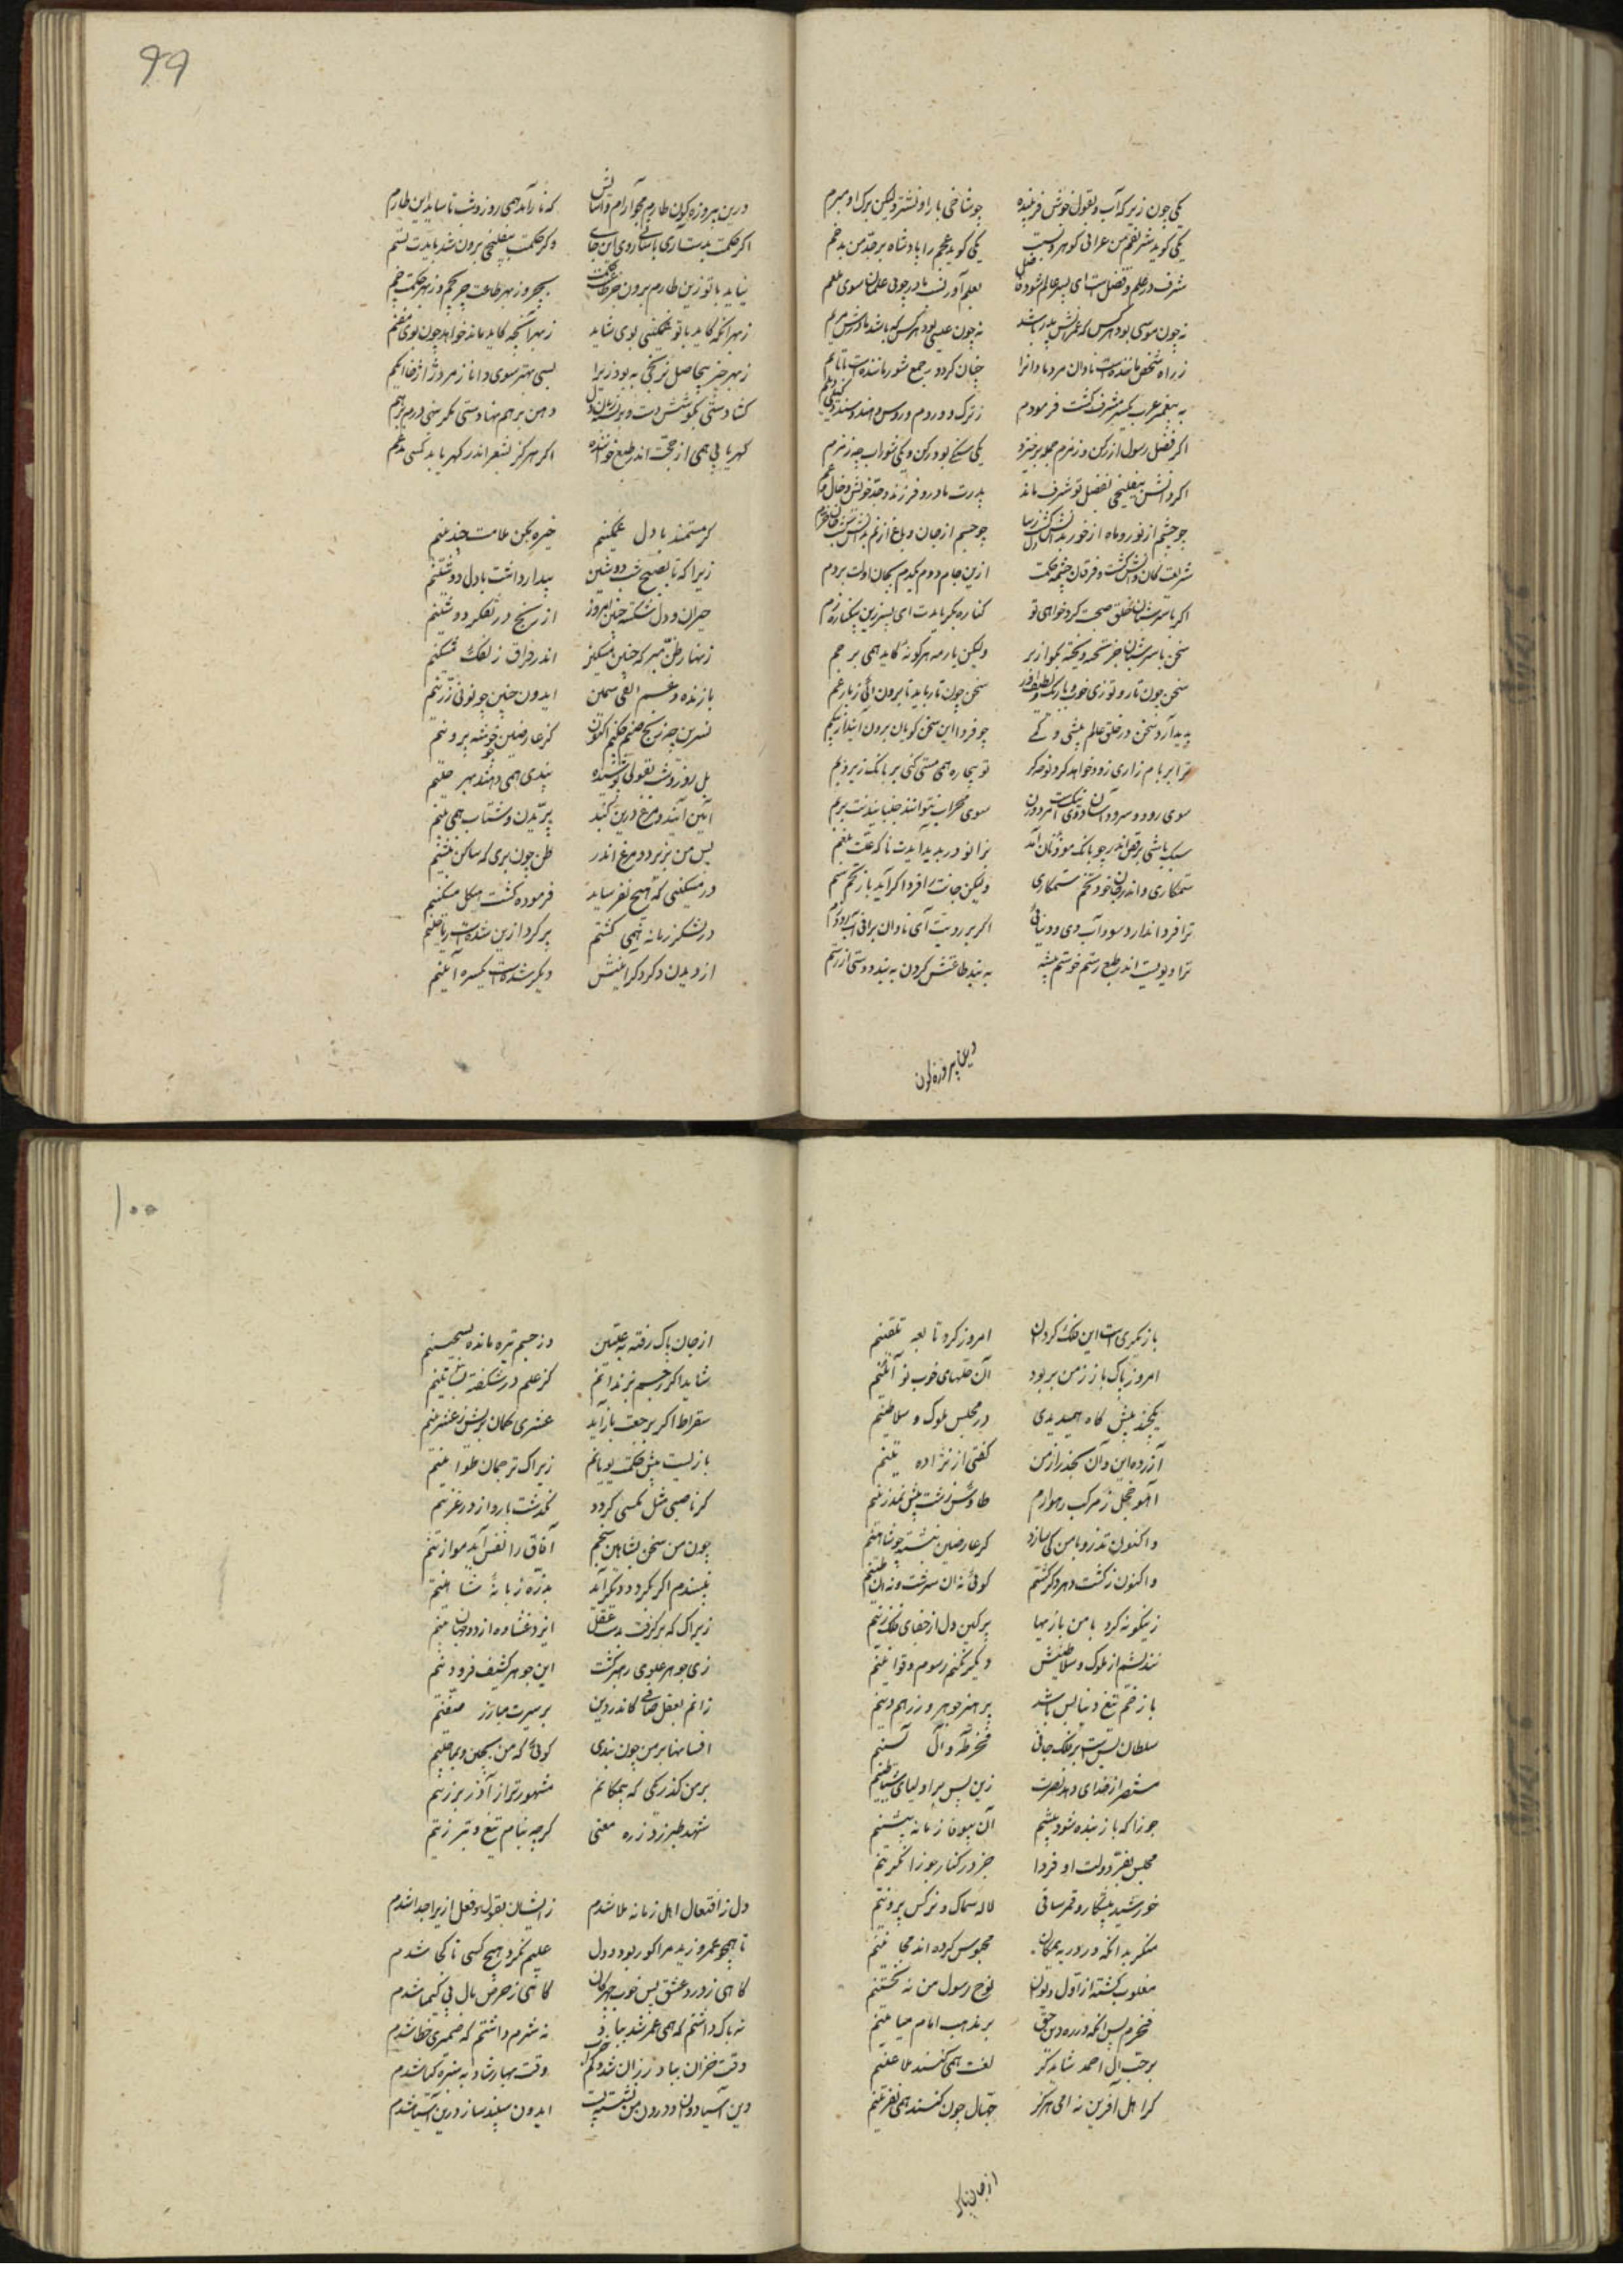 یکی چون زیرکه آب و بقول خوش فریبنده    چو شاخی بار او نشتر ولیکن برک او مبرم
یکی کوید شریفم من عرابی کوهر و نسبت    یکی کوید عجم را پادشاه بر جد من بد جم
شرف در علم و فضلست ای پسر عالم شو و فاضل    بعلم آور نسب ماور چو بی علمان سوی بلعم
نه چون موسی بود هر کس که عمرانش پدر باشد    نه چون عیسی بود هر کس که باشد مادرش مریم
ز راه شخص مانندست نادان مرد با دانا    چنان کردور جمع شور مانندست با ماتم
به پیغمبر عرب یکسر مشرف کشت بر مردم    ز ترک و روم و روس و هند و سند و کیلی و دیلم
اکر فضل رسول از رکن و زمزم جمله برخیزد    یکی سنکی بود رکن و یکی شوراب چه زمزم
اکر دانش بیلفنجی بفضل تو شرف ماند    پدرت و مادر و فرزند و جد و خویش و خال و عم
چو چشم از نور و ماه از خور بدانش کشت زیبا دل    چو جسم از جان و باغ از نم بدانش کشت جان خرم
شریعت کان دانش کشت و فرقان چشمه حکمت    ازین جام دوم یکدم بجان اولت بر دم
اکر با سرشناسان خلق صحبت کرد خواهی تو    کناره کیر بایدت ای پسر زین بیکناره یم
سخن با سرشناسان جز سخته و پخته مکو ازیر    ولیکن بار مه هرکونه کاید همی بر جم
سخن چون تار و توزی خوب و باریک و لطیف آور    سخن چون تار باید تا برون آئی ز تار غم
پدید آرد سخن در خلق عالم بیشی و کمی    چو فردا این سخن کویان برون آیند از پیکم
ترا بر بام زاری زود خواهد کرد نوحه کر    تو بیچاره همی مستی کنی بر بانک زیر و بم
سوی رود و سرود آسان دوی لیکن    سوی محراب نتوانند جنبانیدنت بیرم
سبک باشی برقص اندر چو بانک موذنان آمد    بزانو در پدید آیدت ناکه علت بلغم
ستمکاری و اندر جان خود تخم ستمکاری    ولیکن جانت را فردا کزاید بار تخم سم
ترا فردا ندارد سود آب روی دنیائی    اکر بر رویت ای نادان برانی آب رود زم
ترا دیویست اندر طبع رستم خو ستم پیشه    به بند طاعتش کردن به بند و دوستی از رستم
درین پیروزه کون
۹۹
درین پیروزه کون طارم مجو آرام و آسایش    که نارامد همی روز و شب تا ساید این طارم
اکر حکمت بدست آری باسانی روی این جای    وکر حکمت بیلفنجی برون شد بایدت بستم
نیاید با تو زین طارم برون جز طاعت و حکمت    بهجر و زبهر طاعت چم وز بهر حکمت چم
زبهر آنکه کاید با تو غمکینی بوی شاید    زبهر آنچه کاید ماند خواهد چون بوی مغتم
زبهر چیز بیحاصل نرنجی به بود زیرا    بسی بهتر سوی دانا ز مرد ژاژخا ابکم
کشاد دستی بکوشش دست و برون دل    دهن بر هم نهادستی مکر سنی درم بر هم
کهر یابی همی از حجت اندر طبع خواننده    اکر هرکز بشعر اندر کهر یابد کسی مدغم
کر مستمند با دل غمکینم    خیره مکن ملامت چندینم
زیرا که تا بصبح شب دوشین    بیدار داشت با دل دوشینم
حیران و دل شکسته چنین امروز    از رنج در تفکر دوشینم
زنهار ظن مبر که چنین مسکین    اندر فراق زلفک مشکینم
با زنده وغم الفی سمین    ایدون چنین چو نونی زرینم
نسرین چه زنخ صنم چکنم اکنون    کز عارضین چو خوشه پروینم
بل روز و شب بقولی پوشیده    پندی همی دهند بهر حینم
آئین آیند و مرغ درین کنبد    پریدن و شتاب همی بینم
پس من بزیر پر دو مرغ اندر    ظن چون بری که ساکن بنشینم
در مسکنی که هیچ نفرساید    فرموده کشت هیکل مسکینم
در لشکر زمانه بسی کشتم    پر کرد ازین شدست ریاحینم
از دیدن دکر دکر آئینش    دیکر شدست یکسره آئینم
باز یکریست این فلک کردون    امروز کرد تابعه تلقینم
امروز پاک باز ز من بربود    آن حلهای خوب نو آئینم
یکچند پیش کاه همیدیدی    در مجلس ملوک و سلاطینم
آزرده این و آن بحذر از من    کفتی از نژاده تنینم
آهو خجل ز مرکب رهوارم    طاوس زشت پیش نمدزینم
واکنون تذرو با من کی سازد    کز عارضین نشسته چو شاهینم
واکنون ز کشت دهر دکر کشتم    کوئی نه آن سرشت و نه آن طینم
زینکونه کرد با من بازیها    پر کین دل از جفای فلک زینم
نندیشم از ملوک و سلاطینش    دیکر نکنم رسوم و قوانینم
با زخم تیغ دنیا بس باشد    پرهیز جوهر و زره همه دینم
سلطان بس است بر فلک جانی    فخر طه و آل یسینم
مستنصر از خدای دهد نصرت    زین پس بر اولیای شیاطینم
جوزا که باز بنده شود پیشم    آن بیوفا زمانه پیشینم
مجلس بفر دولت او فردا    جز در کنار حورا نکزینم
خورشید پیشکار و قمر ساقی    لاله سماک و نرکس پروینم
منکر بدانکه در دره یمکان    محبوس کرده اند مجانینم
مغلوب کشته از اول دیوان    نوح رسول من نه نخستینم
فخرم بس آنکه در ره دین حق    بر مذهب امام میامینم
بر حب آل احمد شاید کر    لعنت همی کنند ملاعینم
کر اهل آفرین نه امی هرکز    جهال چون کنند همی نفرینم
از جان پاک
۱۰۰
از جان پاک رفته به علیین    وز جسم تیره مانده بسجینم
شاید اکر ز جسم بزندانم    کز علم در شکفته بساتینم
سقراط اکر برجعت باز آید    عشری کمان بریش ز عشرینم
بازیست پیش حکمت یونانم    زیراک ترجمان طواسینم
کر ناصبی مثل مکسی کردد    نکذشت یارد از در غزنینم
چون من سخن بشاهین سنجم    آفاق را نفس آید موازینم
نپسندم اکر بکردد دیکر آید    بذره زبانه شاهینم
زیراک که بر کرفت بدست عقل    ایزد غشاوه از دو جهان بینم
زی جوهر علوی رهبر کشت    این جوهر کثیف فرودینم
زانم بعقل صافی کاندر دین    بر سیرت مبارز صفینم
افسانها بر من چون بندی    کوئی که من بچین و بماچینم
بر من کذر یکی که بیمکانم    مشهورتر از آذر برزینم
شهد طبرزد ز ره معنی    کرچه بنام تیغ و تبرزینم
دل ز افتعال اهل زمانه ملا شدم    زایشان بقول و فعل ازیرا جدا شدم
تا همچو عمرو زید مرا کور بود دل    عیبم نکرد هیچ کسی تا کجا شدم
کاهی ز درد عشق پس خوب چهرکان    کاهی ز حرص مال پی کیمیا شدم
نه باک داشتم که همی عمر شد بباد    نه شرم داشتم که ضمیری خطا شدم
وقت خزان بباد رزان شد دلم    وقت بهار شاد به سبزه کیا شدم
وین آسیا دوان و درو من نشسته پست    ایدون سپید سار درین آسیا شدم